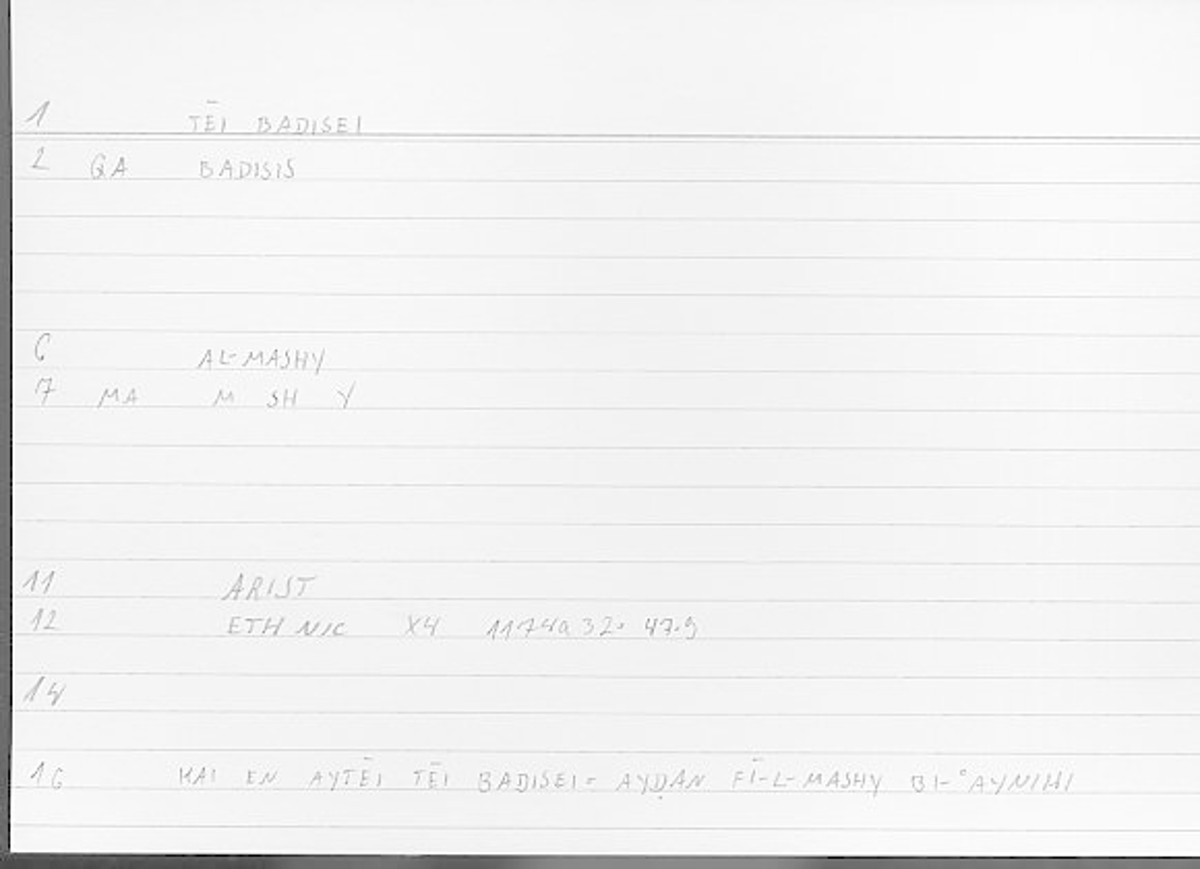 1 TĒI BADISEI
2 QA BADISIS
6 AL-MASHY
7 MA M SH Y
11 ARIST
12 ETH NIC X4 1174a 32. 47.9
14
16 KAI EN AYTĒI TĒI BADISEI = AYḌAN FĪ-L-MASHY BI-°AYNIHI